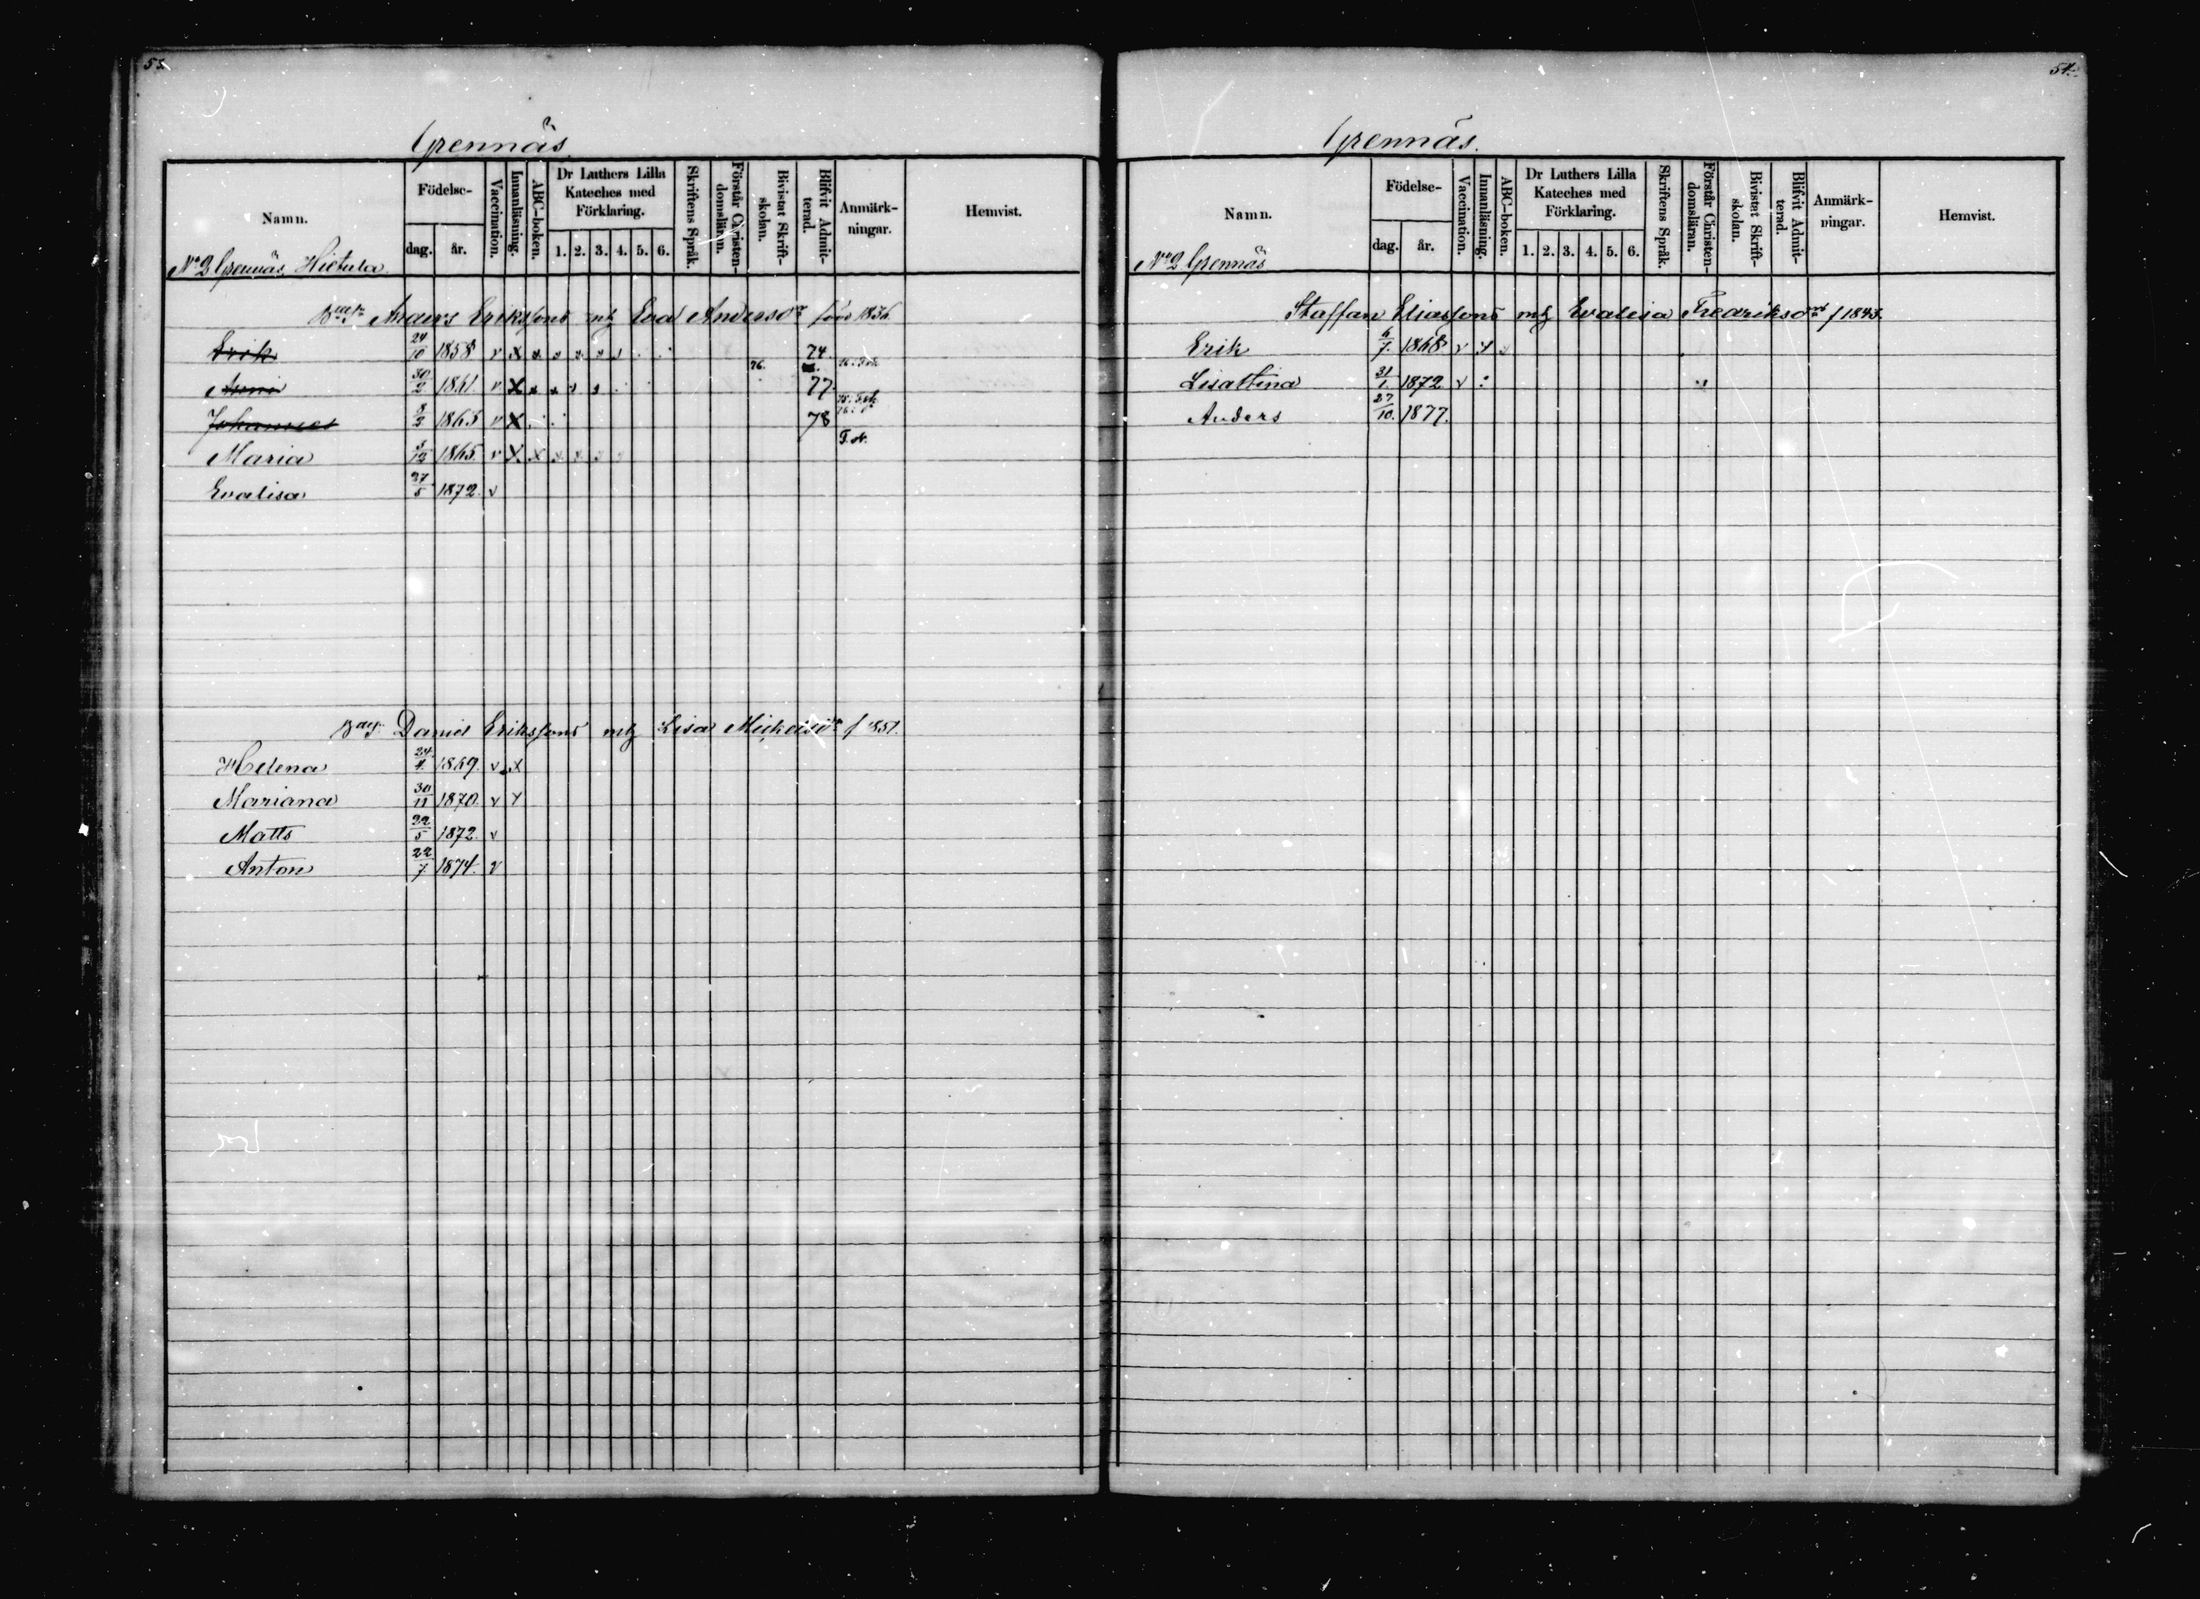 53.
Grennäs
Namn.
Födelse-
dag. år.
Vaccination.
Innanläsning.
ABC-boken.
Dr Luthers Lilla
Kateches med
Förklaring.
1. 2. 3. 4. 5. 6.
Skriftens Språk.
Förstår Christen-
domsläran.
Bivistat Skrift-
skolan.
Blifvit Admit-
terad.
Anmärk-
ningar.
Hemvist.
No 2 Grennäs Hietula
Anders Erikssons mh Eva Andersdr född 1836
Erik 24/10 1858 v x x x x x 76. 74.
Anni 30/2 1861 v x x x x x 77
Johannes 8/2 1863 v x 78
Maria 1865 v x x x x x
Evalisa 27/5 1872 v
Daniel Erikssons mh Lisa f 1851.
Helena 24/4 1869. v x
Mariana 30/11 1870. v
Matts 22/5 1872. v
Anton 22/7 1874. v
54.
Grennäs.
Namn.
Födelse-
dag. år.
Vaccination.
Innanläsning.
ABC-boken.
Dr Luthers Lilla
Kateches med
Förklaring.
1. 2. 3. 4. 5. 6.
Skriftens Språk.
Förstår Christen-
domsläran.
Bivistat Skrift-
skolan.
Blifvit Admit-
terad.
Anmärk-
ningar.
Hemvist.
No 2 Grennäs
Staffan Eliassons mh Evalisa Fredriksdr f 1843.
Erik 6/7. 1868. v
Lisastina 31/1. 1872 v
Anders 27/10. 1877.